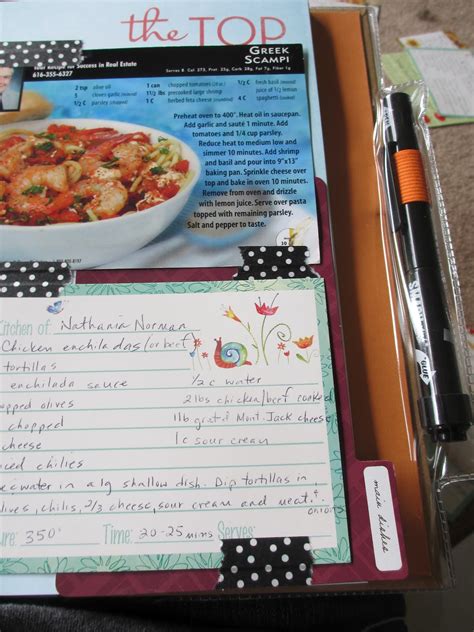 the TOP
Your Recipe for Success in Real Estate
616-355-6327
GREEK
SCAMPI
Serves 8 Cal 373, Prot 25g, Carb 28g, Fat 7g, Fiber 1g
2 tsp olive oil
5 cloves garlic (minced)
parsley (minced)
1 can chopped tomatoes
1½ lbs precooked large shrimp
1 c feta cheese
fresh basil
juice of ½ lemon
spaghetti
Preheat oven to 400°. Heat oil in saucepan.
Add garlic and sauté 1 minute. Add
tomatoes and 1/4 cup parsley.
Reduce heat to medium low and
simmer 10 minutes. Add shrimp
and basil and pour into 9"x13"
baking pan. Sprinkle cheese over
top and bake in oven 10 minutes.
Remove from oven and drizzle
with lemon juice. Serve over pasta
topped with remaining parsley.
Salt and pepper to taste.
Kitchen of: Nathania Norman
Chicken enchiladas (or beef)
tortillas
enchilada sauce
½ c water
opped olives
2 lbs chicken/beef cooked
chopped
1 lb grat'd Mont. Jack cheese
cheese
1 c sour cream
iced chilies
water in a lg shallow dish. Dip tortillas in
lives, chilis, 2/3 cheese, sour cream and meat. +
onions
ure: 350° Time: 20-25 mins Serves:
main dishes